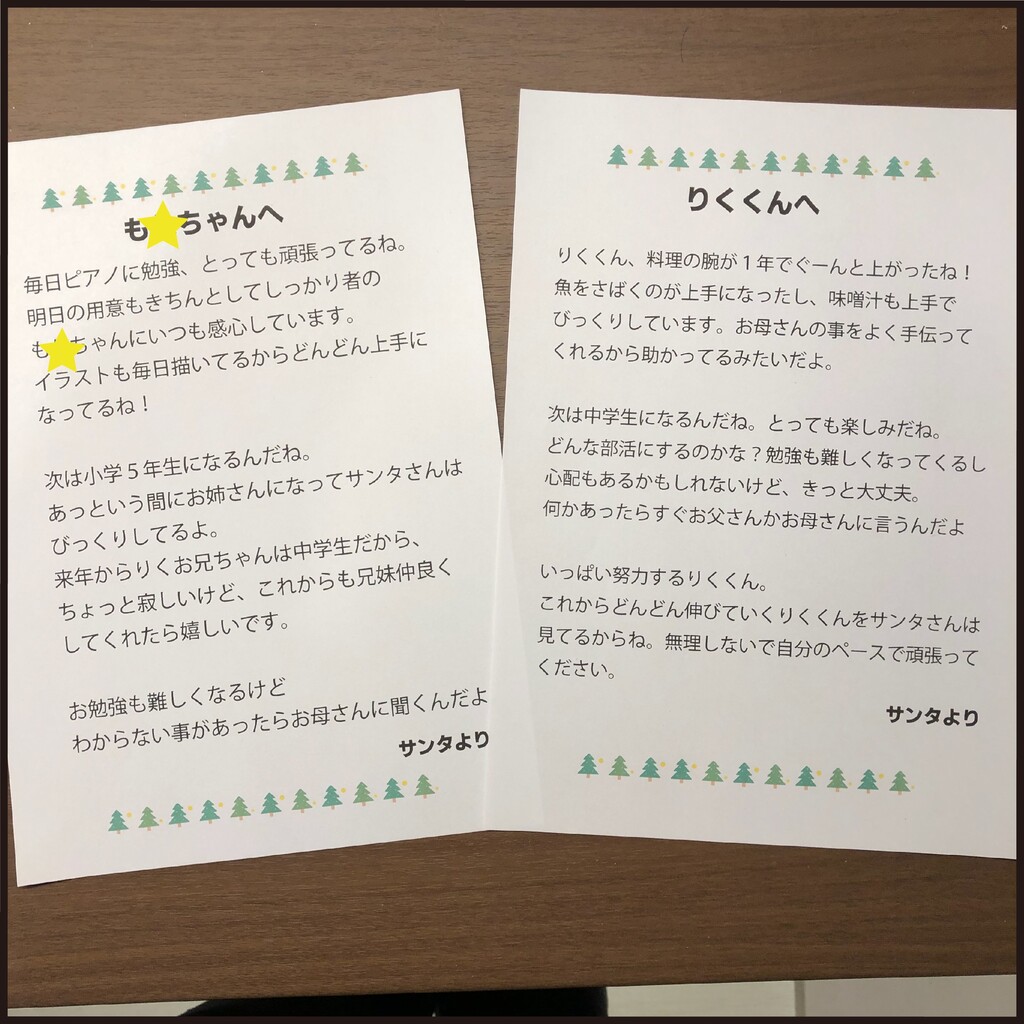 も ちゃんへ
毎日ピアノに勉強、とっても頑張ってるね。
明日の用意もきちんとしてしっかり者の
も ちゃんにいつも感心しています。
イラストも毎日描いてるからどんどん上手に
なってるね！
次は小学５年生になるんだね。
あっという間にお姉さんになってサンタさんは
びっくりしてるよ。
来年からりくお兄ちゃんは中学生だから、
ちょっと寂しいけど、これからも兄妹仲良く
してくれたら嬉しいです。
お勉強も難しくなるけど
わからない事があったらお母さんに聞くんだよ
サンタより
りくくんへ
りくくん、料理の腕が１年でぐーんと上がったね！
魚をさばくのが上手になったし、味噌汁も上手で
びっくりしています。お母さんの事をよく手伝って
くれるから助かってるみたいだよ。
次は中学生になるんだね。とっても楽しみだね。
どんな部活にするのかな？勉強も難しくなってくるし
心配もあるかもしれないけど、きっと大丈夫。
何かあったらすぐお父さんかお母さんに言うんだよ
いっぱい努力するりくくん。
これからどんどん伸びていくりくくんをサンタさんは
見てるからね。無理しないで自分のペースで頑張って
ください。
サンタより